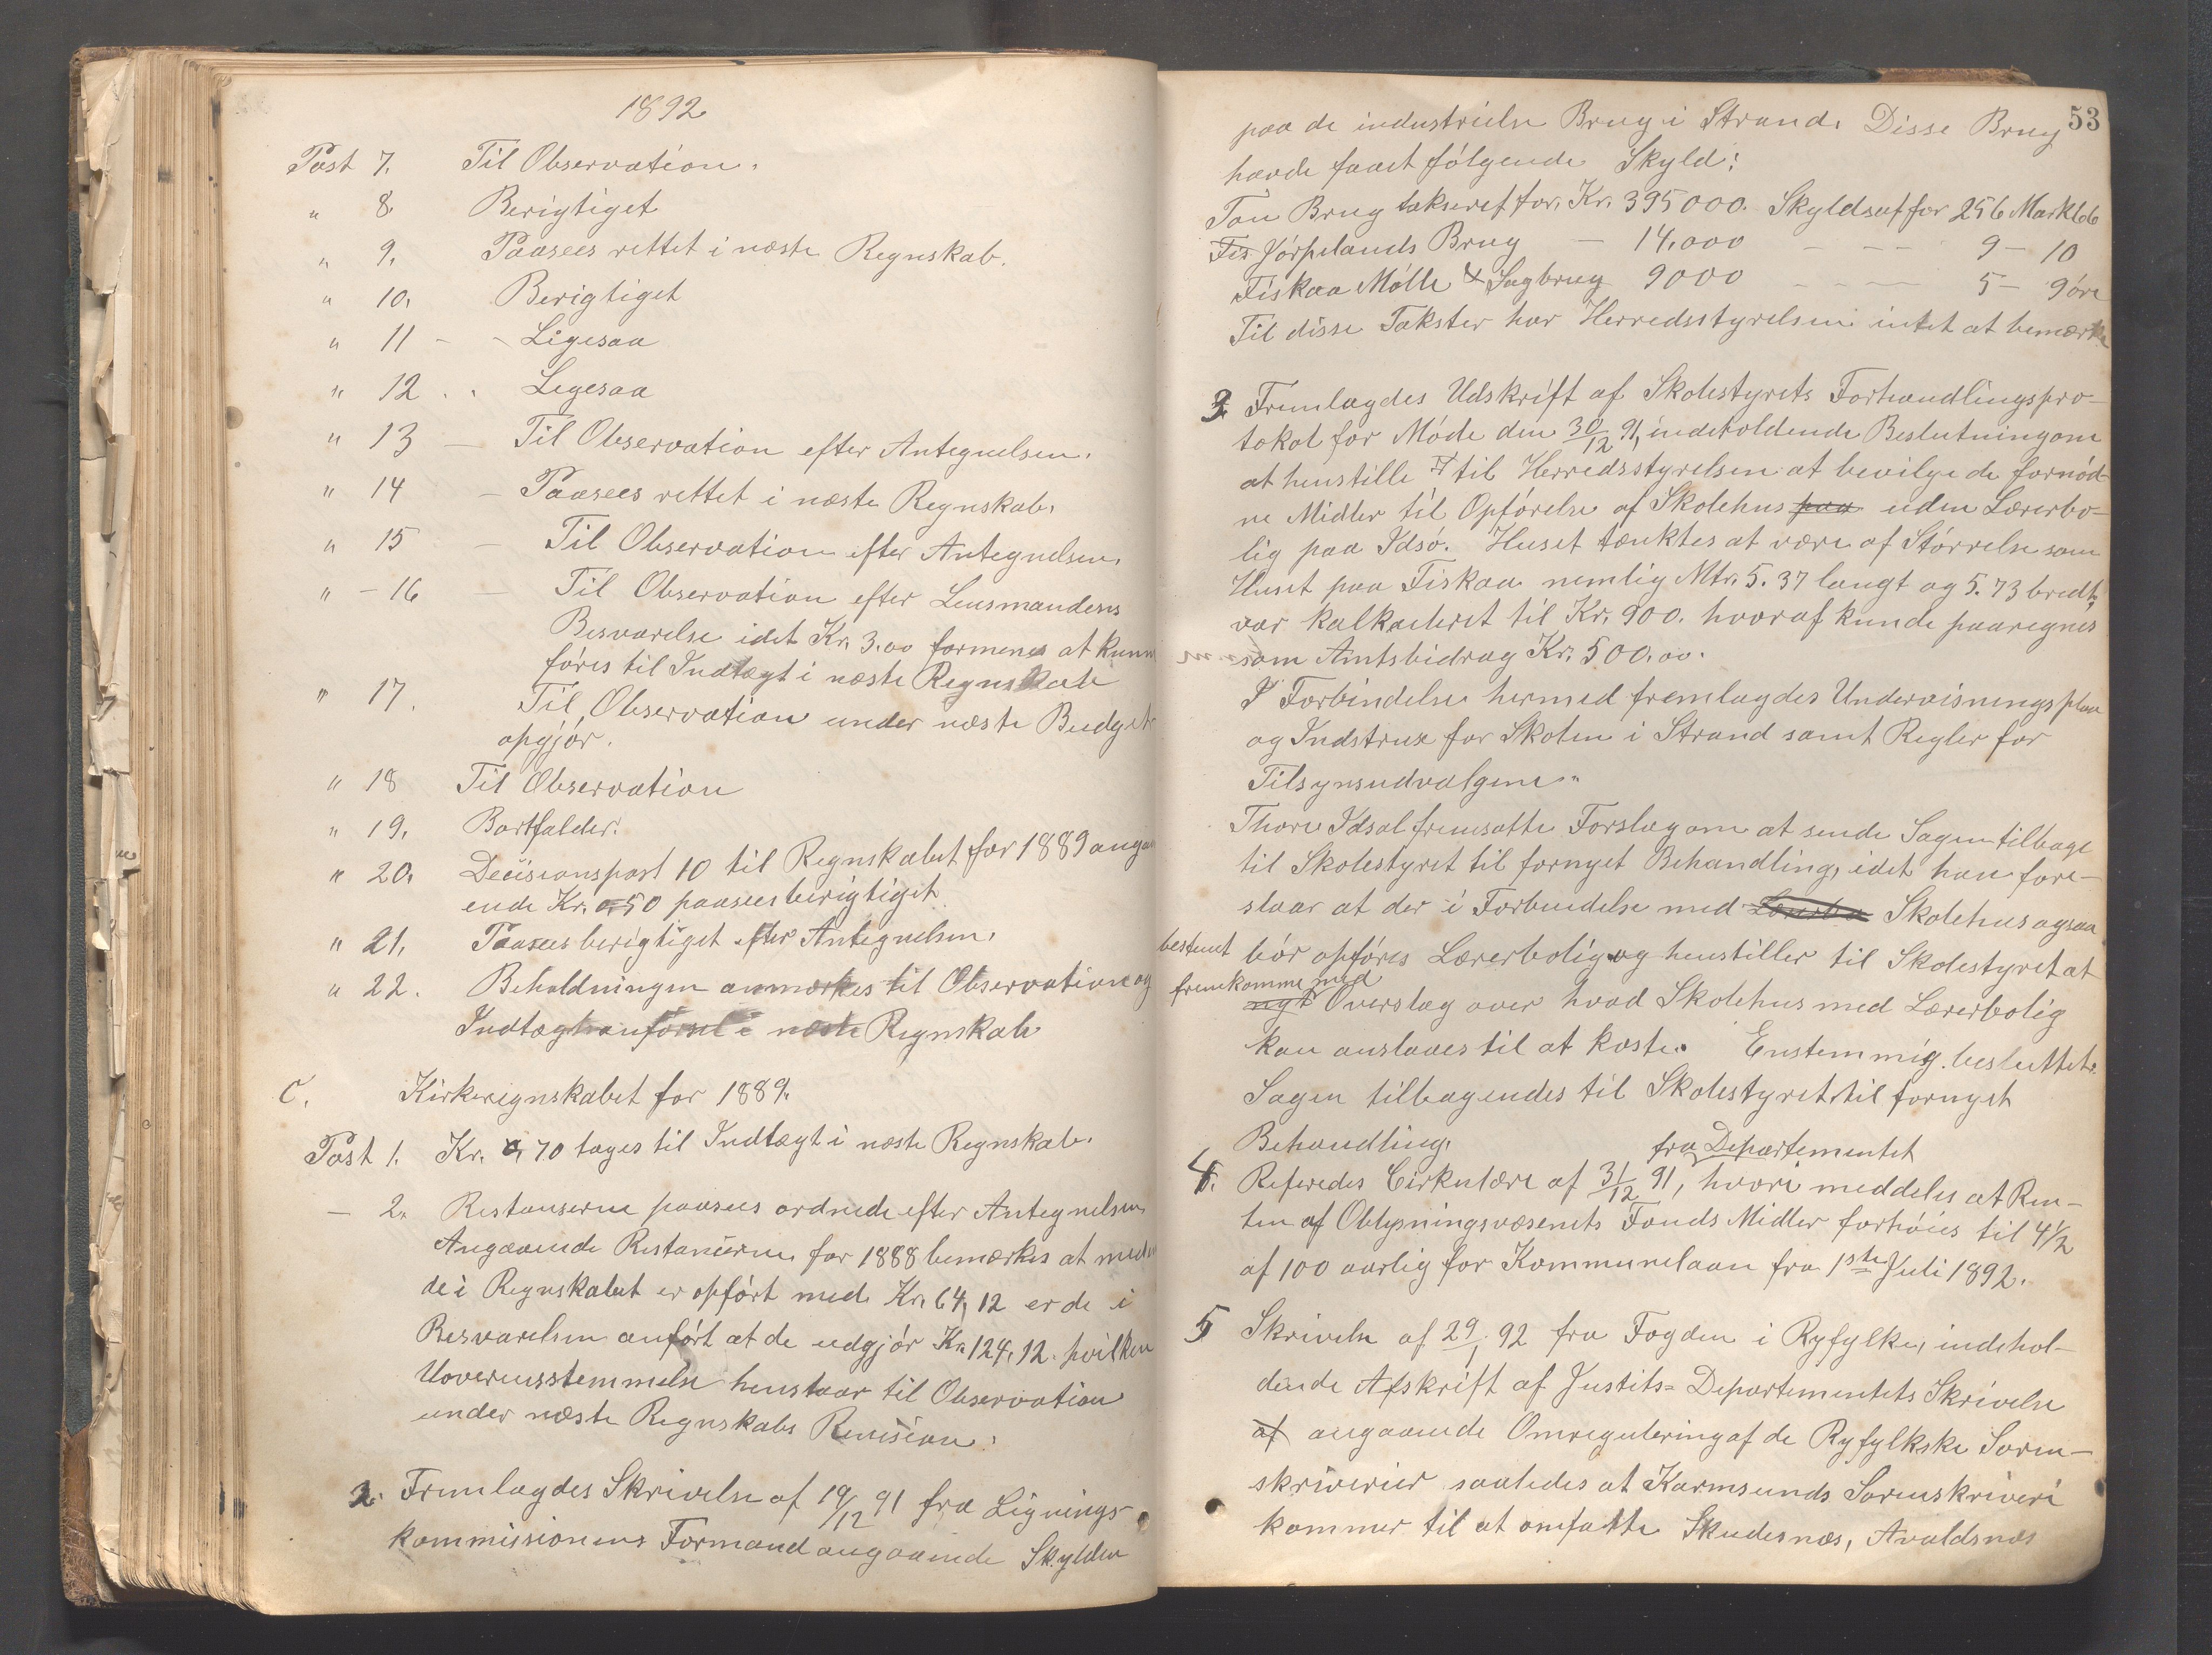 1892
Post 7. Til Observation.
" 8. Berigtiget
" 9. Paasees rettet i næste Regnskab.
" 10. Berigtiget
" 11 - - Ligesaa
" 12 . . Ligesaa
" 13 — Til Observation efter Antegnelsen.
" 14 — Paasees rettet i næste Regnskab.
" 15 — Til Observation efter Antegnelsen.
" - 16 — Til Observation efter Lensmandens
Besvarelse idet Kr. 3.00 formenes at kunne
føres til Indtægt i næste Regnskab
" 17. Til Observation under næste Budget
opgjør.
" 18 Til Observation
" 19. Bortfalder.
" 20. Decisionspost 10 til Regnskabet for 1889 angaa
ende Kr. 0,50 paasees berigtiget.
" 21. Paasees berigtiget efter Antegnelsen.
" 22. Beholdningen anmærkes til Observation og
Indtægtsanførsel i næste Regnskab
C. Kirkeregnskabet for 1889.
Post 1. Kr. 0,70 tages til Indtægt i næste Regnskab.
— 2. Restanserne paasees ordnede efter Antegnelsen
Angaaende Restancerne for 1888 bemærkes at meden
de i Regnskabet er opført med Kr. 64,12 er de i
Besvarelsen anført at de udgjør Kr. 124,12. hvilken
Uoverensstemmelse henstaar til Observation
under næste Regnskabs Revision.
2. Fremlagdes Skrivelse af 19/12 91 fra Lignings
kommissionens Formand angaaende Skylden
53
paa de industrielse Brug i Strand. Disse Brug
havde faaet følgende Skyld:
Tau Brug takseret for Kr. 395000. Skyldsat for 256 Mark 66
Fis Jørpelands Brug — 14.000 — — — 9 — 10
Fiskaa Mølle & Sagbrug 9000 — — — 5 — 9 øre
Til disse Takster har Herredsstyrelsen intet at bemærke
3. Fremlagdes Udskrift af Skolestyrets Forhandlingspro-
tokol for Møde den 30/12 91, indeholdende Beslutning om
at henstille til Herredsstyrelsen at bevilge de fornød-
ne Midler til Opførelse af Skolehus paa uden Lærerbo-
lig paa Idsø. Huset tænktes at være af Størrelse som
Huset paa Fiskaa nemlig Mtr. 5.37 langt og 5.73 bredt,
var kalkuleret til Kr. 900. hvoraf kunde paaregnes
som Amtsbidrag Kr. 500.00.
I Forbindelse hermed fremlagdes Undervisningsplan
og Indstrux for Skolen i Strand samt Regler for
Tilsynsudvalgene.
Thore Idsal fremsatte Forslag om at sende Sagen tilbage
til Skolestyret til fornyet Behandling, idet han fore-
slaar at der i Forbindelse med Lærerbo Skolehus ogsaa
bestemt bør opføres Lærerbolig og henstiller til Skolestyret at
fremkomme med
nyt Overslag over hvad Skolehus med Lærerbolig
kan anslaaes til at koste. Enstemmig besluttet.
Sagen tilbagesendes til Skolestyret til fornyet
Behandling.
fra Departementet
4. Referedes Cirkulære af 31/12 91, hvori meddeles at Ren-
ten af Oblysningsvæsenets Fonds Midler forhøies til 4 1/2
af 100 aarlig for Kommunelaan fra 1ste Juli 1892.
5 Skrivelse af 29/1 92 fra Fogden i Ryfylke, indehol-
dende Afskrift af Justits=Departementets Skrivelse
af angaaende Omregulering af de Ryfylkske Soren-
skriverier saaledes at Karmsunds Sorenskriveri
kommer til at omfatte Skudesnæs, Avaldsnæs